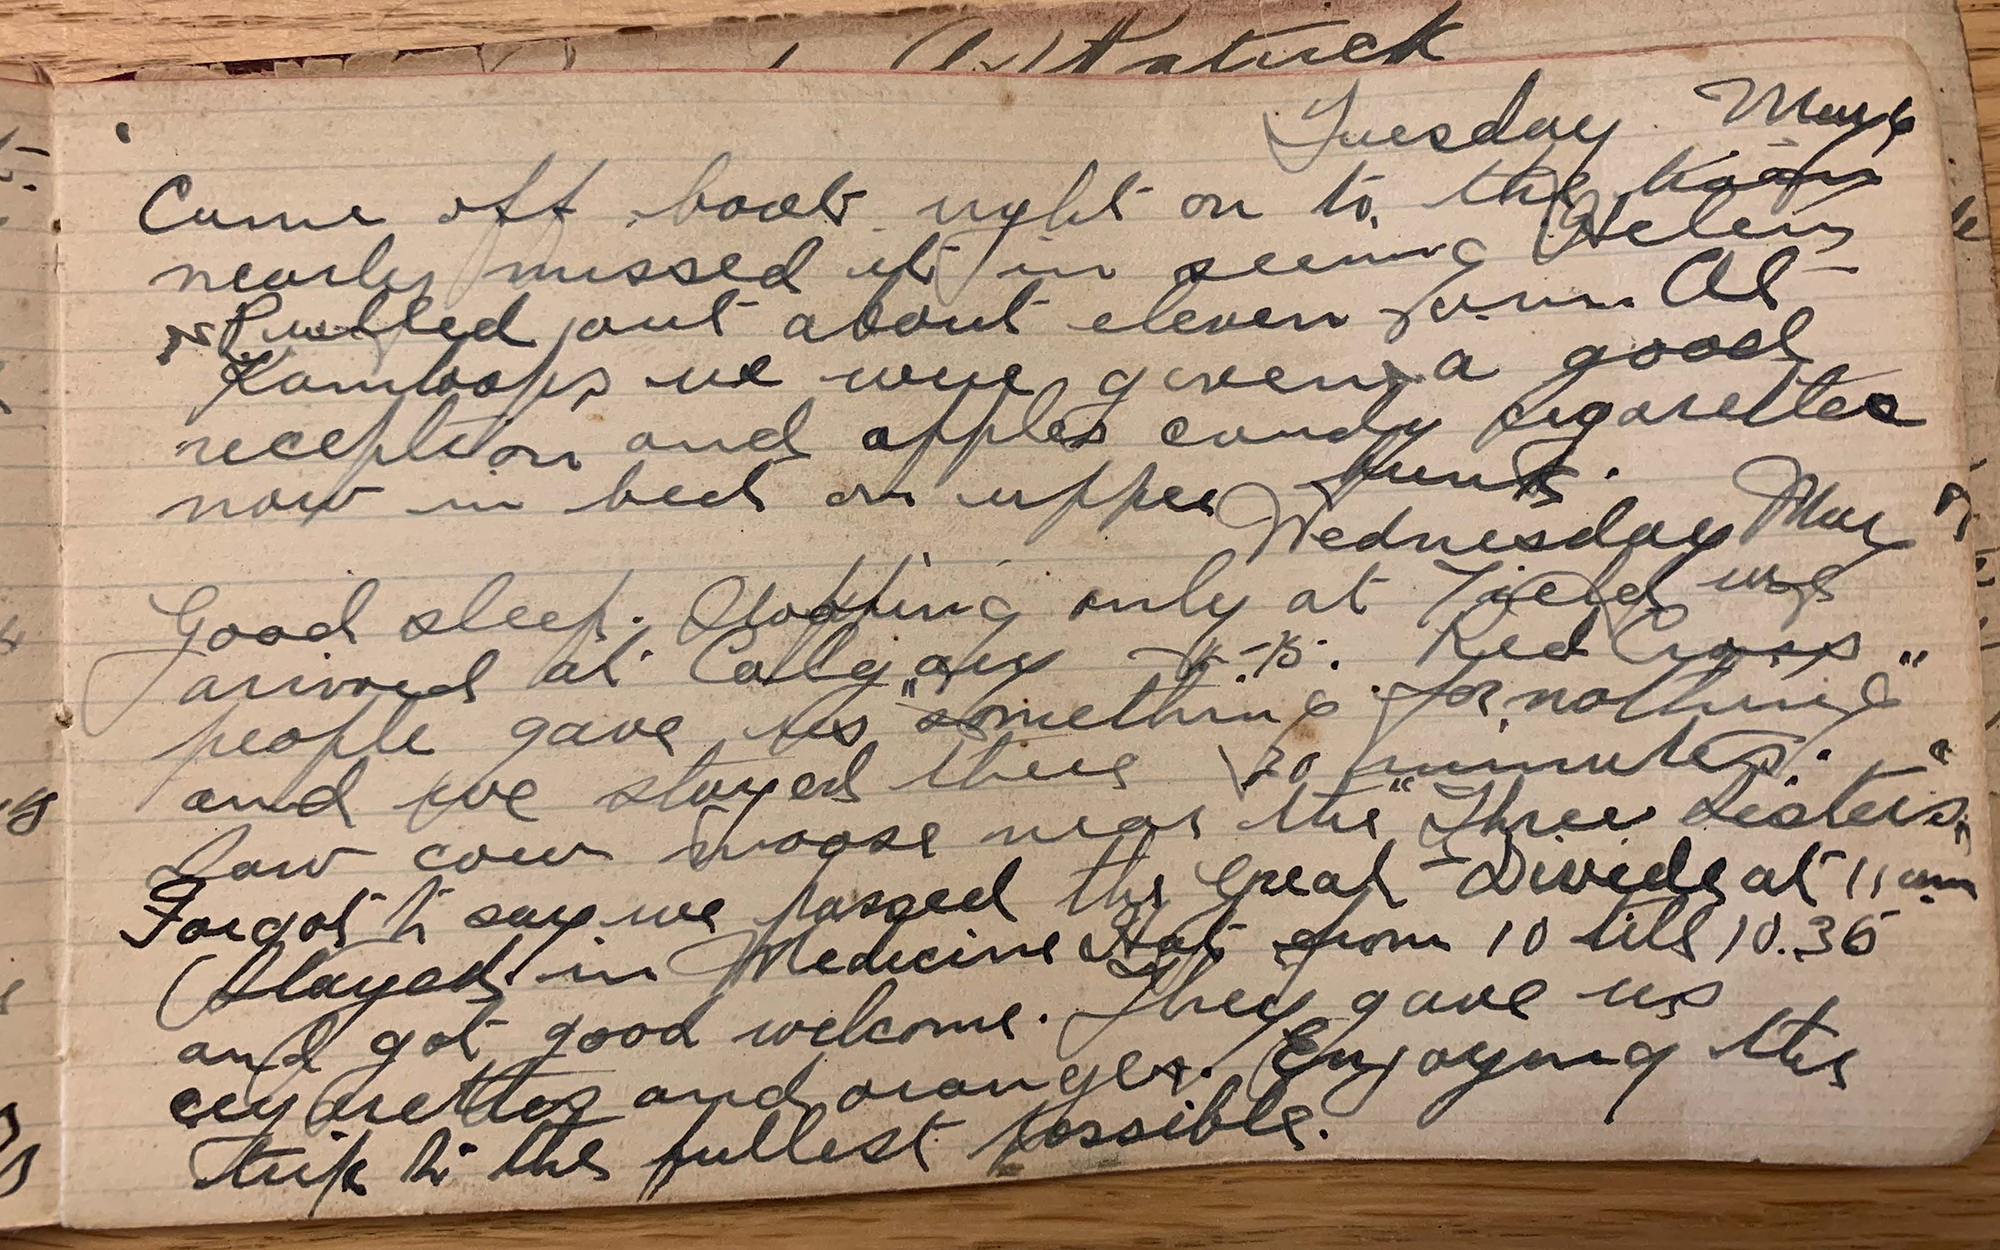 Patrick
Tuesday May 6
Came off boat right on to the train
nearly missed it in seeing Helen
Pulled out about eleven a.m. At
Kamloops we were given a good
reception and apples candy cigarettes
now in bed on upper bunk.
Wednesday May 7
Good sleep. Stopping only at Field we
arrived at Calgary -15. Red Cross
people gave us "something for nothing"
and we stayed there 20 minutes.
Saw cow moose near the "Three Sisters"
Forgot to say we passed the Great Divide at 11 am
Stayed in Medicine Hat from 10 till 10.35
and got good welcome. They gave us
cigarettes and oranges. Enjoying this
trip to the fullest possible.